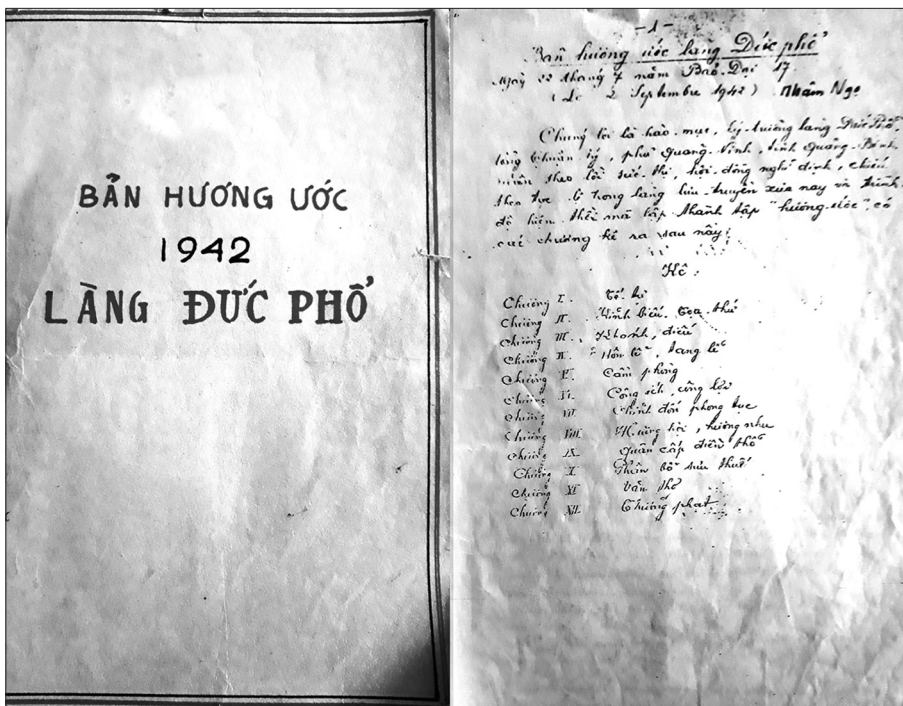 BẢN HƯƠNG ƯỚC
1942
LÀNG ĐỨC PHỔ
-1-
Bản hương ước làng Đức phổ
Ngày 22 tháng 7 năm Bảo-Đại 17
(Le 2 Septembre 1942) Nhâm Ngọ
Chúng tôi là hào-mục, lý-trưởng làng Đức Phổ,
tổng Thuận lý, phủ Quảng-Ninh, tỉnh Quảng-Bình
theo lời sức thị, hội đồng nghị định, chiếu
theo tục lệ trong làng lưu-truyền xưa nay và trình
độ hiện thời mà lập thành tập "hương ước", có
các chương kê ra sau này:
Kê:
Chương I. Tế tự
Chương II. Kính biếu, tọa thứ
Chương III. Khánh, điếu
Chương IV. Hôn lễ, tang lễ
Chương V. Cấm phòng
Chương VI. Công ích, công lợi
Chương VII Chỉnh đốn phong tục
Chương VIII Hương hội, hương nhu
Chương IX Quân cấp điền thổ
Chương X Phân bổ sưu thuế
Chương XI Văn thơ
Chương XII Thưởng phạt